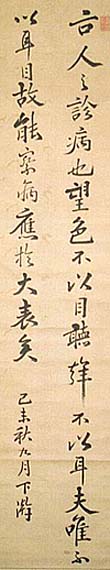 古人之診病也望色不以目聴聲不以耳夫唯不
以耳目故能察病應於大表矣
己未秋九月下澣